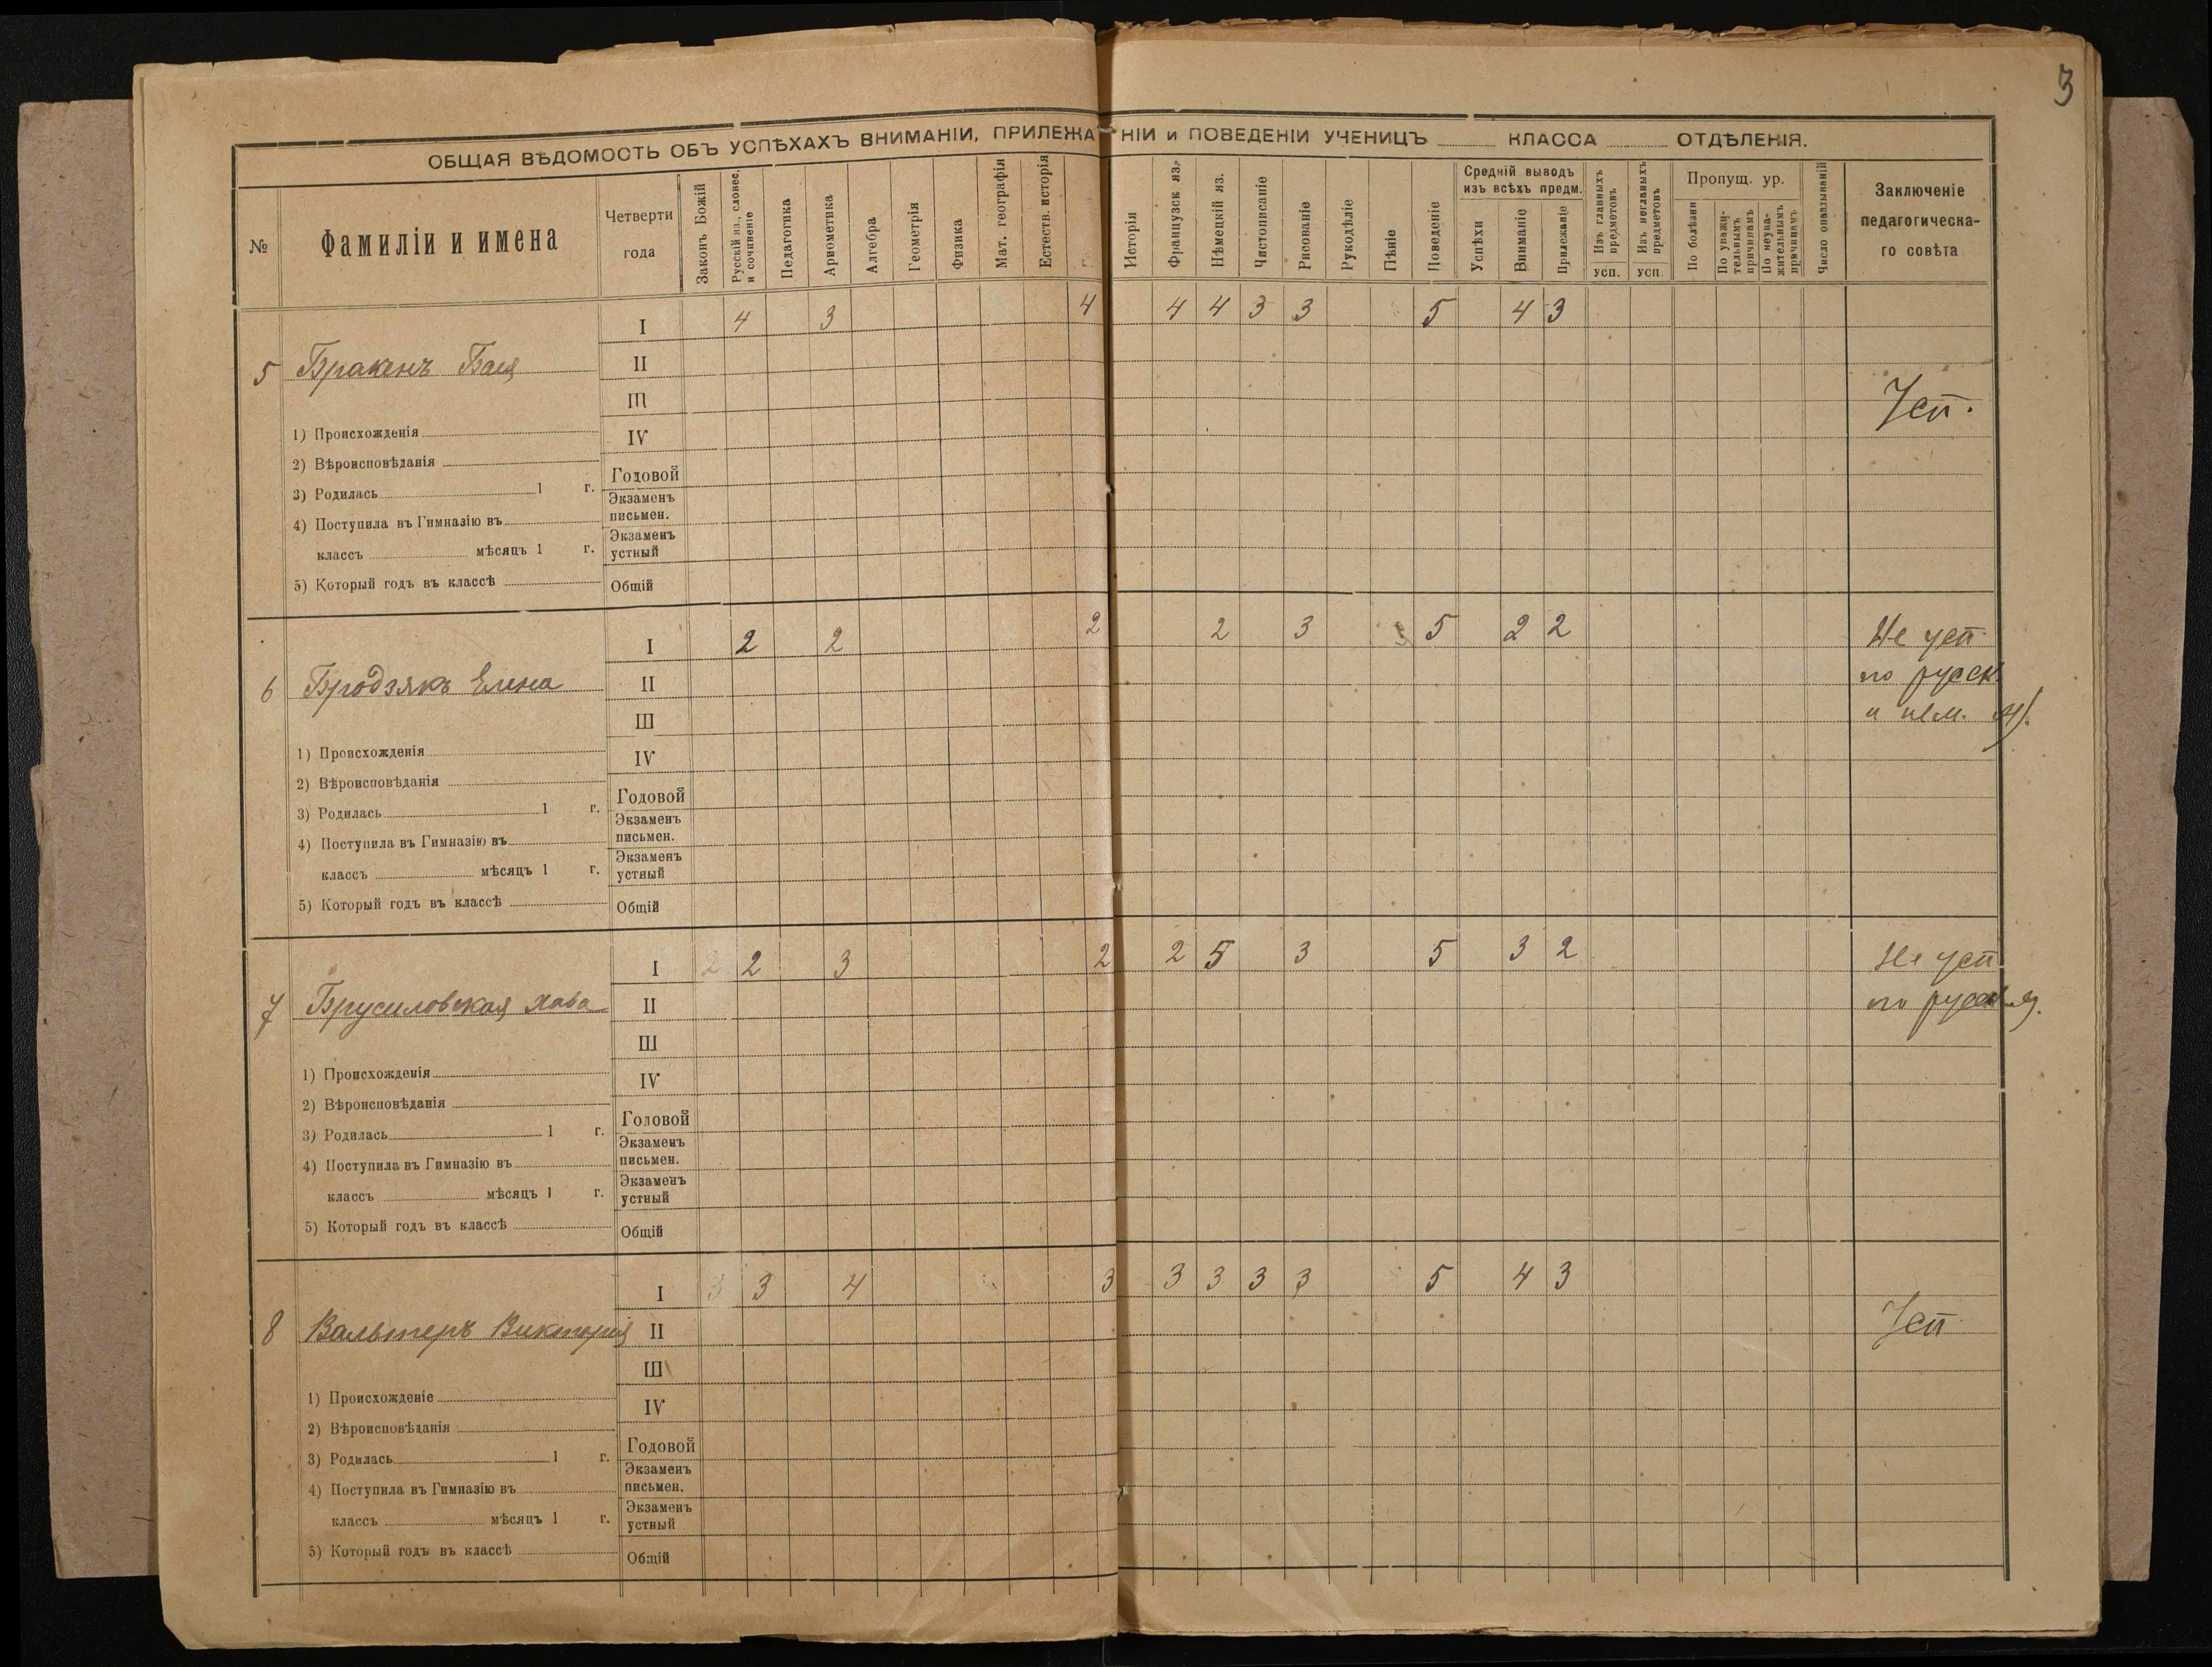 3
ОБЩАЯ ВѢДОМОСТЬ ОБЪ УСПѢХАХЪ ВНИМАНІИ, ПРИЛЕЖАНІИ и ПОВЕДЕНІИ УЧЕНИЦЪ КЛАССА ОТДѢЛЕНІЯ.
№
Фамиліи и имена
Четверти года
Законъ Божій
Русскій яз., словес. и сочиненіе
Педагогика
Ариѳметика
Алгебра
Геометрія
Физика
Мат. географія
Естеств. исторія
Исторія
Французск яз.
Нѣмецкій яз.
Чистописаніе
Рисованіе
Рукодѣліе
Пѣніе
Поведеніе
Средній выводъ изъ всѣхъ предм.
Успѣхи
Вниманіе
Прилежаніе
Изъ главныхъ предметовъ
усп.
Изъ неглавныхъ предметовъ
усп.
Пропущ. ур.
По болѣзни
По уважительнымъ причинамъ
По неуважительнымъ причинамъ
Число опаздываній
Заключеніе педагогическаго совѣта
I 4 3 4 4 4 3 3 5 4 3
5 Бракенъ Бася
II
III
Усп.
1) Происхожденія
IV
2) Вѣроисповѣданія
Годовой
3) Родилась 1 г.
Экзаменъ письмен.
4) Поступила въ Гимназію въ
классъ мѣсяцъ 1 г.
Экзаменъ устный
5) Который годъ въ классѣ
Общій
I 2 2 2 2 3 5 2 2
Не усп
6 Бродзякъ Елена
II
по русск
III
и нѣм. яз.
1) Происхожденія
IV
2) Вѣроисповѣданія
Годовой
3) Родилась 1 г.
Экзаменъ письмен.
4) Поступила въ Гимназію въ
классъ мѣсяцъ 1 г.
Экзаменъ устный
5) Который годъ въ классѣ
Общій
I 2 2 3 2 2 5 3 5 3 2
Не усп
7 Брусиловская Хава
II
по русск яз.
III
1) Происхожденія
IV
2) Вѣроисповѣданія
Годовой
3) Родилась 1 г.
Экзаменъ письмен.
4) Поступила въ Гимназію въ
классъ мѣсяцъ 1 г.
Экзаменъ устный
5) Который годъ въ классѣ
Общій
I 3 3 4 3 3 3 3 3 5 4 3
8 Вальтеръ Викторія
II
Усп
III
1) Происхожденіе
IV
2) Вѣроисповѣданія
Годовой
3) Родилась 1 г.
Экзаменъ письмен.
4) Поступила въ Гимназію въ
классъ мѣсяцъ 1 г.
Экзаменъ устный
5) Который годъ въ классѣ
Общій